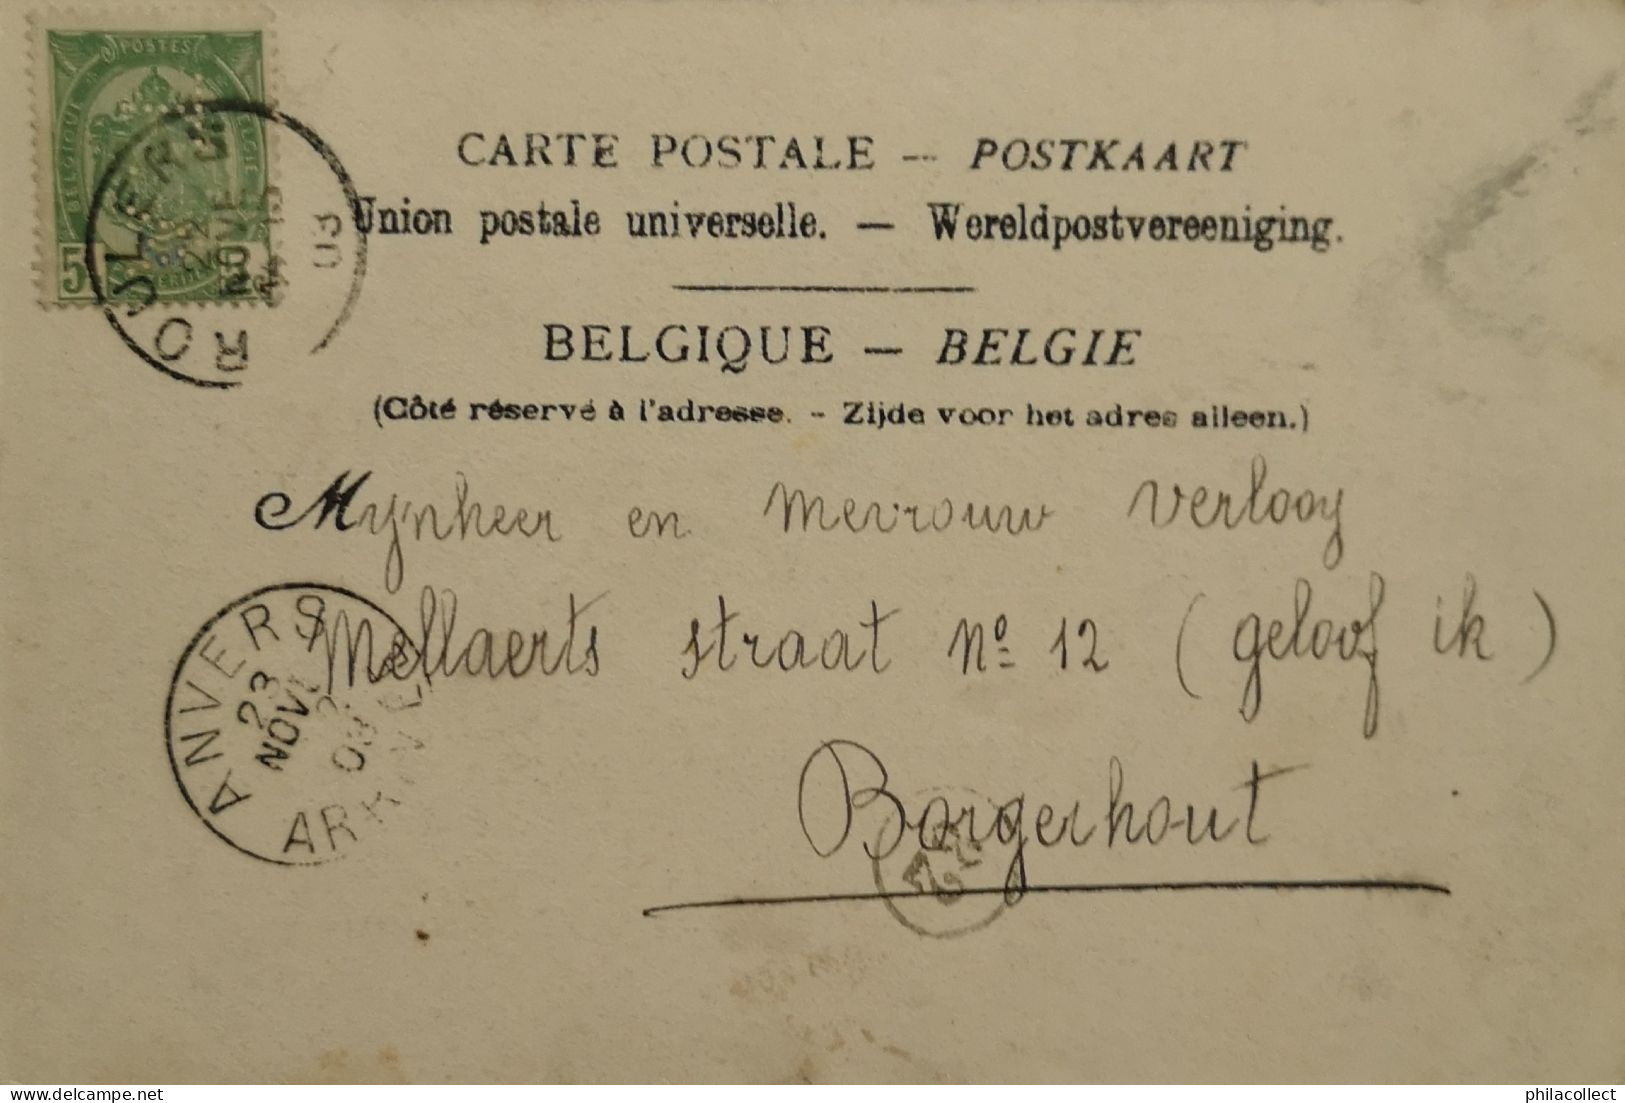 POSTES
BELGIQUE
BELGIË
5
ROULERS
22
NOVE
03
CARTE POSTALE — POSTKAART
Union postale universelle. — Wereldpostvereeniging.
BELGIQUE — BELGIE
(Côté réservé à l'adresse. - Zijde voor het adres alleen.)
Mynheer en mevrouw Verlooy
Mellaerts straat Nº 12 (geloof ik)
Borgerhout
ANVERS
23
NOVE
03
ARRIVEE
22
delcampe.net
philacollect